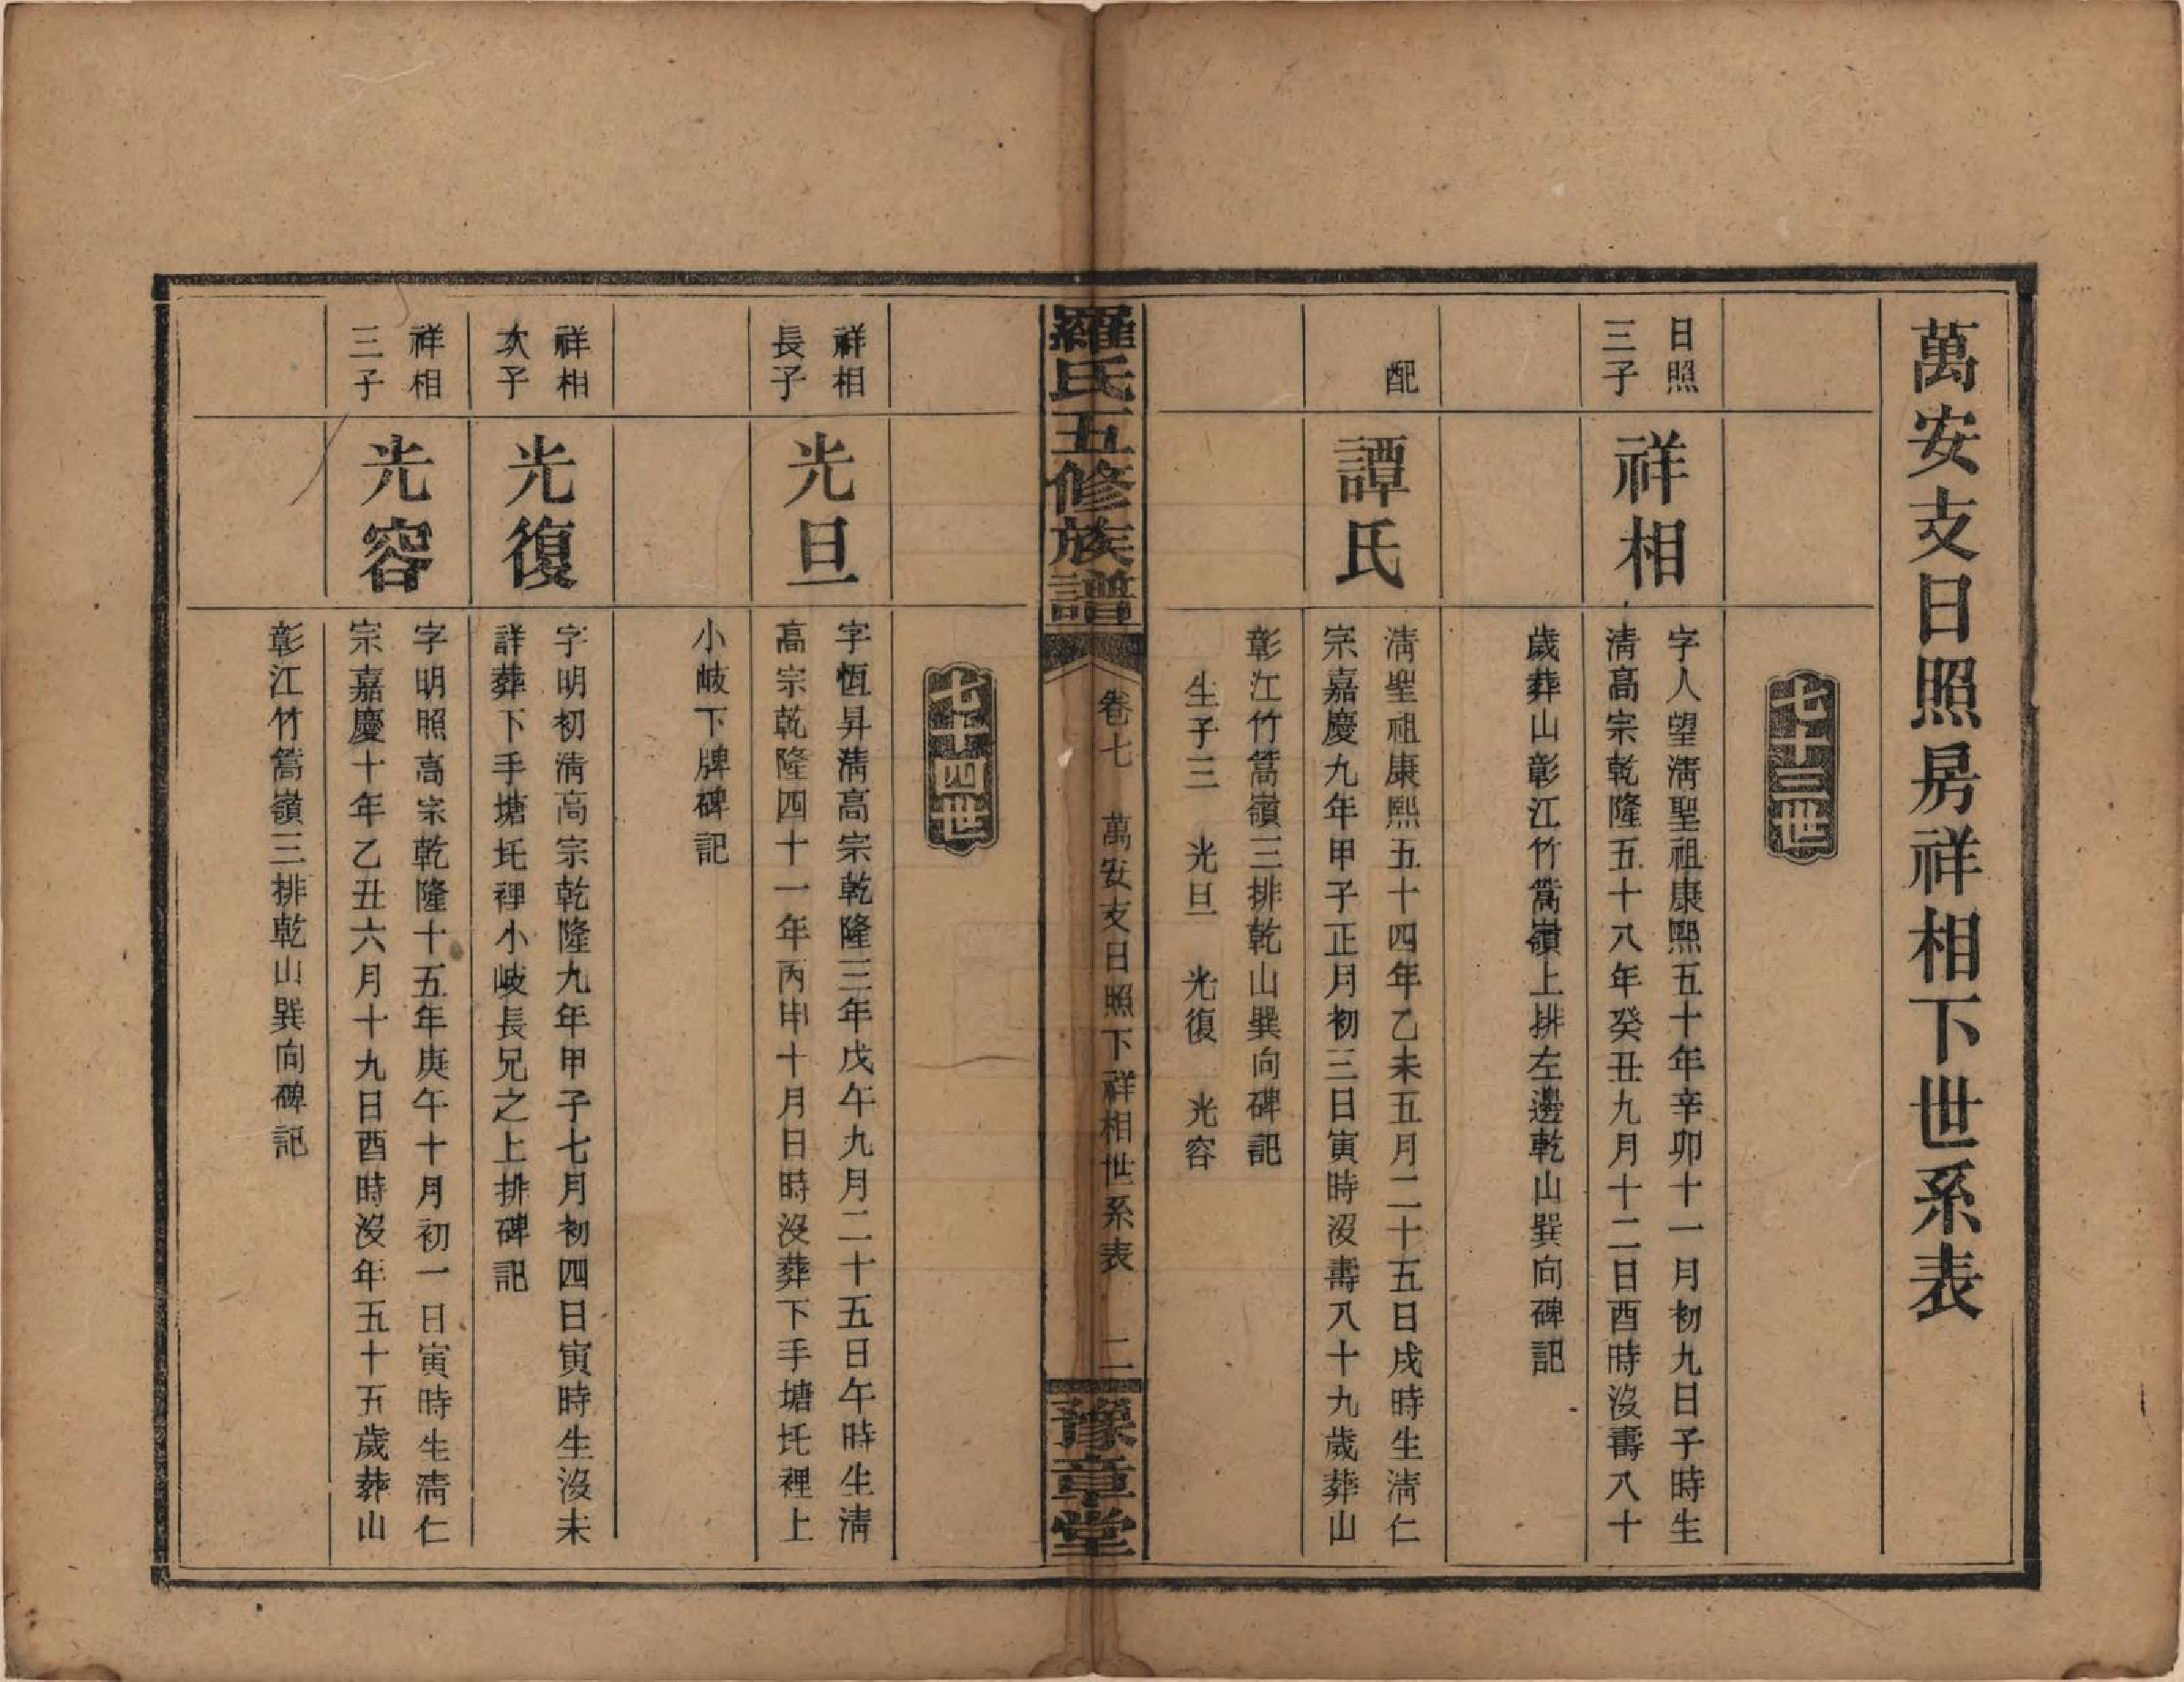 萬安支日照房祥相下世系表
七十三世
日照
三子
祥相
字人望淸聖祖康熙五十年辛卯十一月初九日子時生
淸高宗乾隆五十八年癸丑九月十二日酉時沒壽八十
歲葬山彰江竹篙嶺上排左邊乾山巽向碑記
配
譚氏
淸聖祖康熙五十四年乙未五月二十五日戌時生淸仁
宗嘉慶九年甲子正月初三日寅時沒壽八十九歲葬山
彰江竹篙嶺三排乾山巽向碑記
生子三 光旦 光復 光容
羅氏五修族譜
卷七 萬安支日照下祥相世系表 二
豫章堂
七十四世
祥相
長子
光旦
字恆昇淸高宗乾隆三年戊午九月二十五日午時生淸
高宗乾隆四十一年丙申十月日時沒葬下手塘圫裡上
小岐下牌碑記
祥相
次子
光復
字明初淸高宗乾隆九年甲子七月初四日寅時生沒未
詳葬下手塘圫裡小岐長兄之上排碑記
祥相
三子
光容
字明照高宗乾隆十五年庚午十月初一日寅時生淸仁
宗嘉慶十年乙丑六月十九日酉時沒年五十五歲葬山
彰江竹篙嶺三排乾山巽向碑記